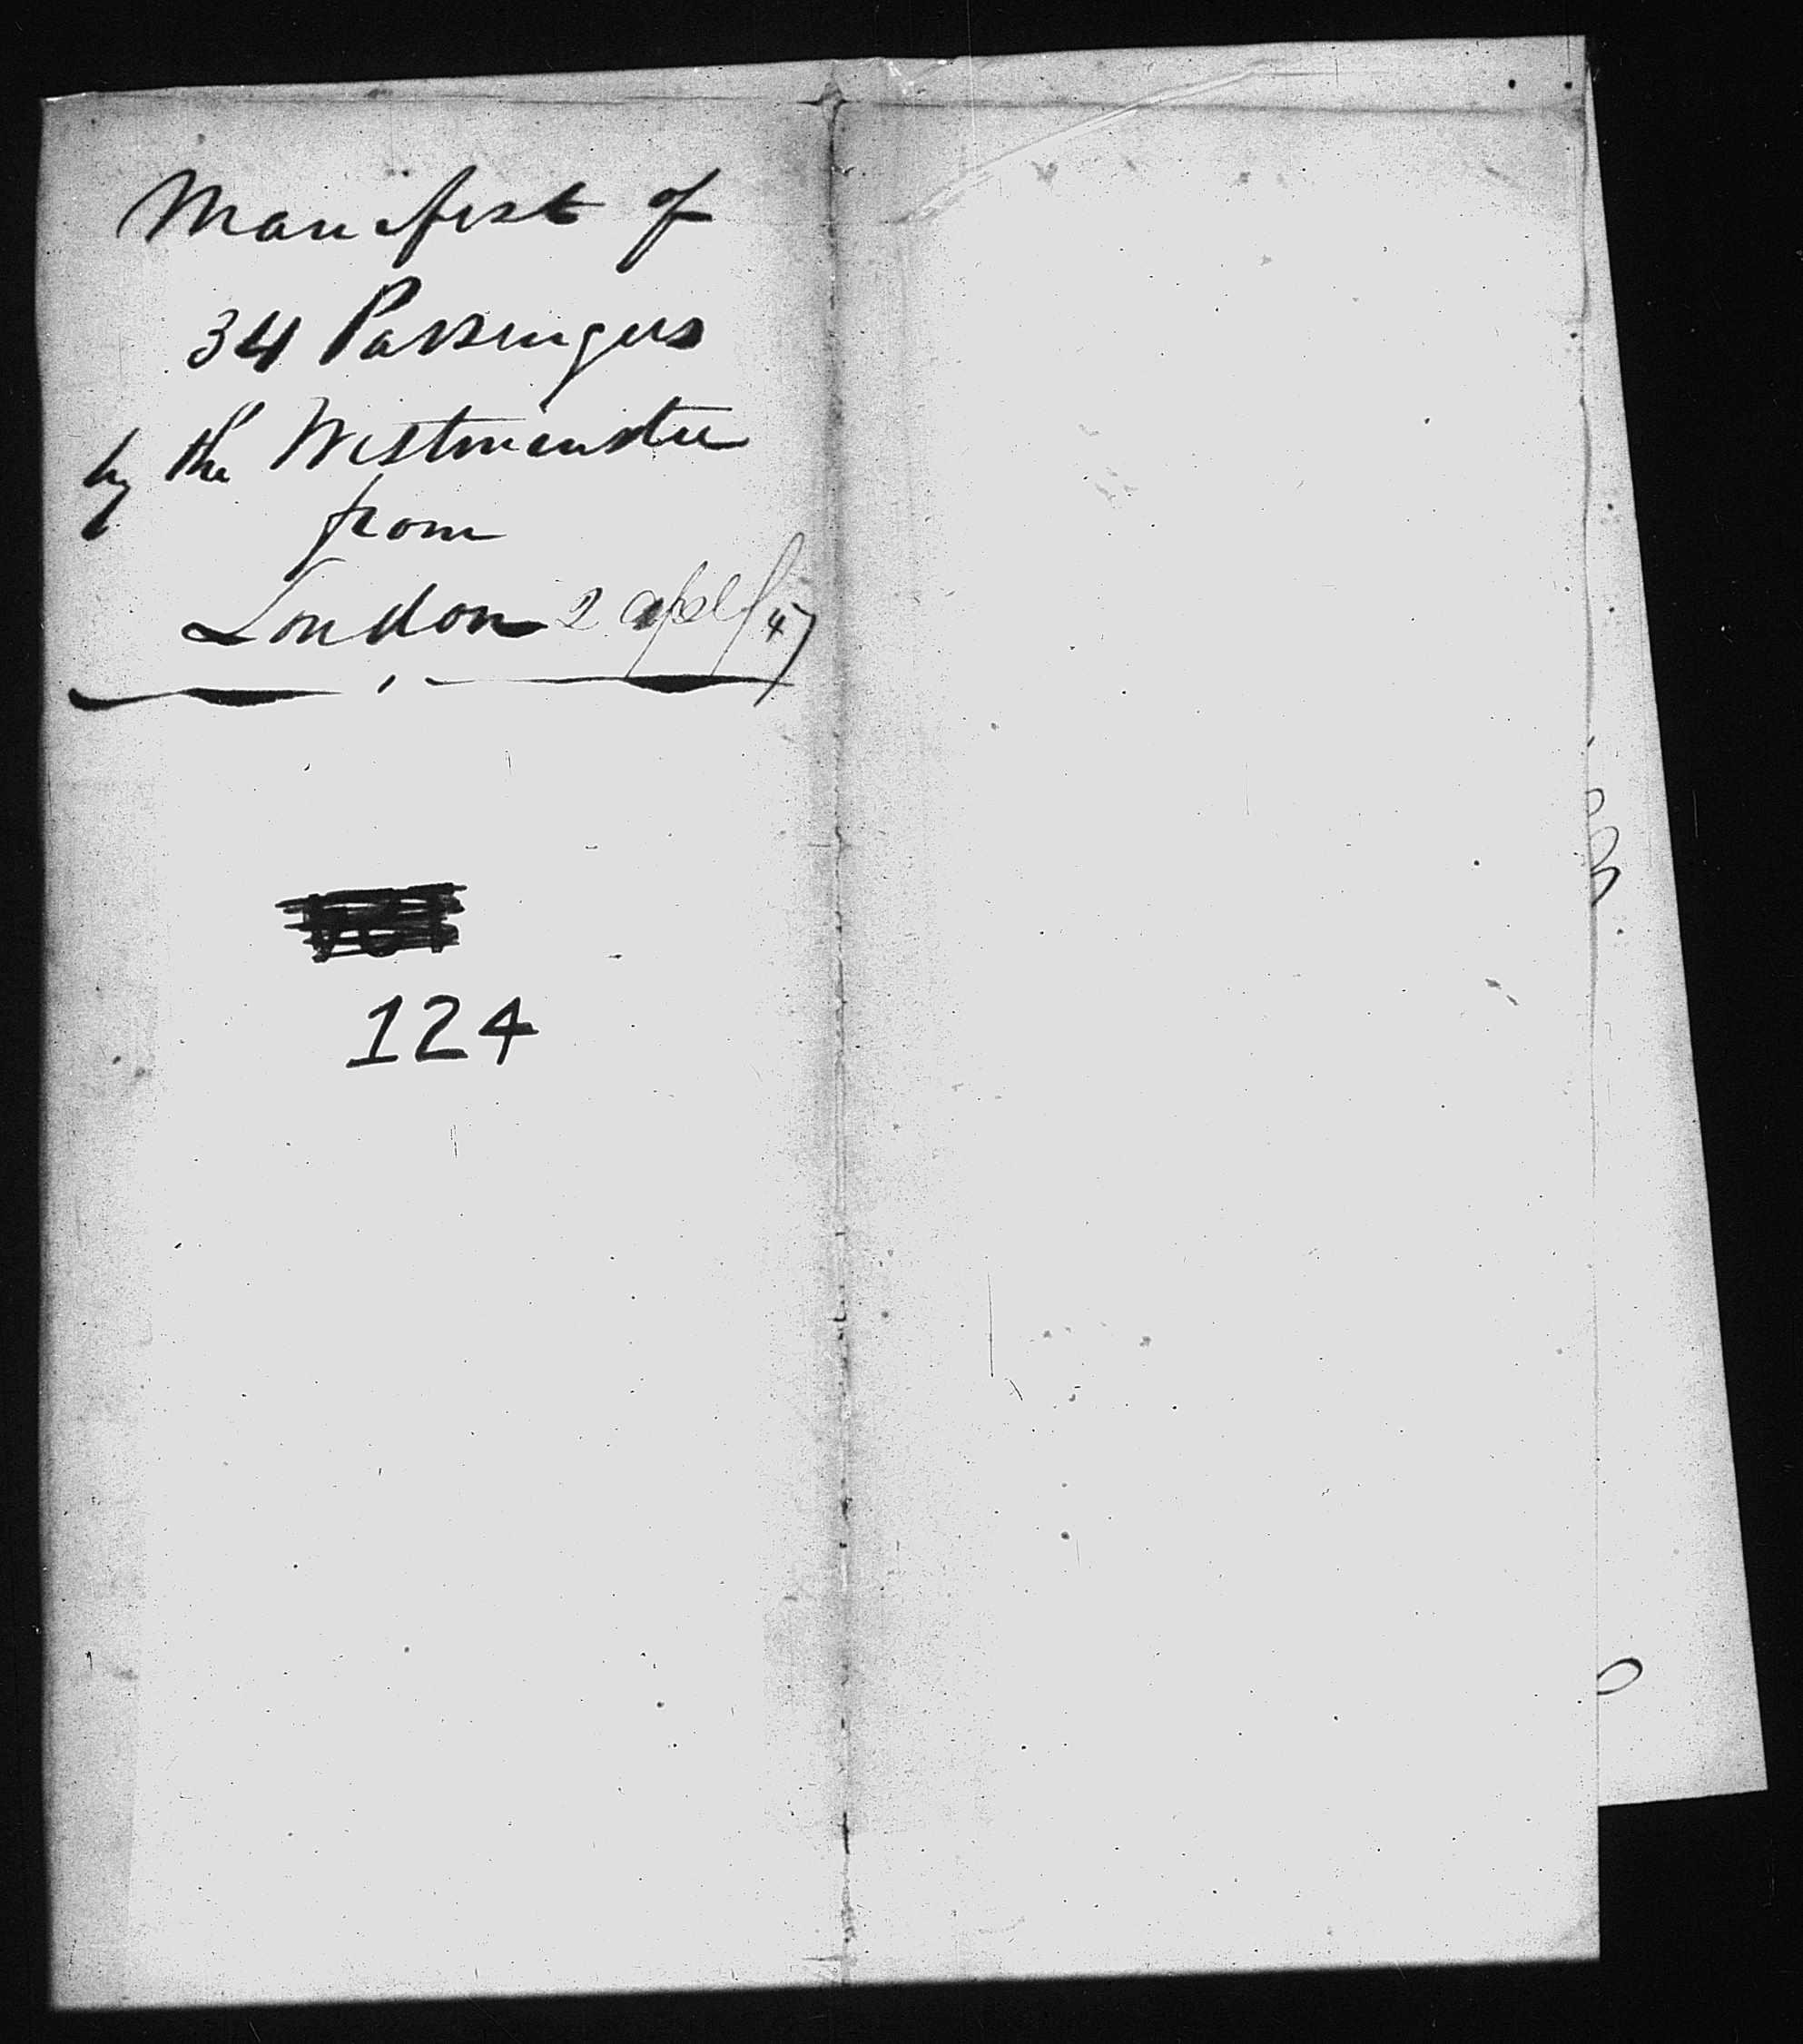 Manifest of
34 Passengers
by the Westminster
from
London 2 apl/47
124